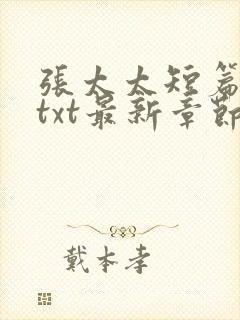 張太太短篇
txt最新章節
戴本孝